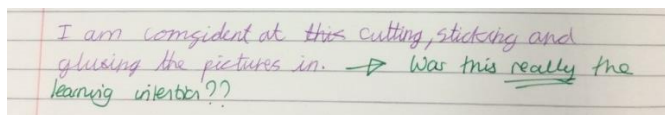 I am comgident at this cutting, sticking and
glusing the pictures in. → Was this really the
learning intention??